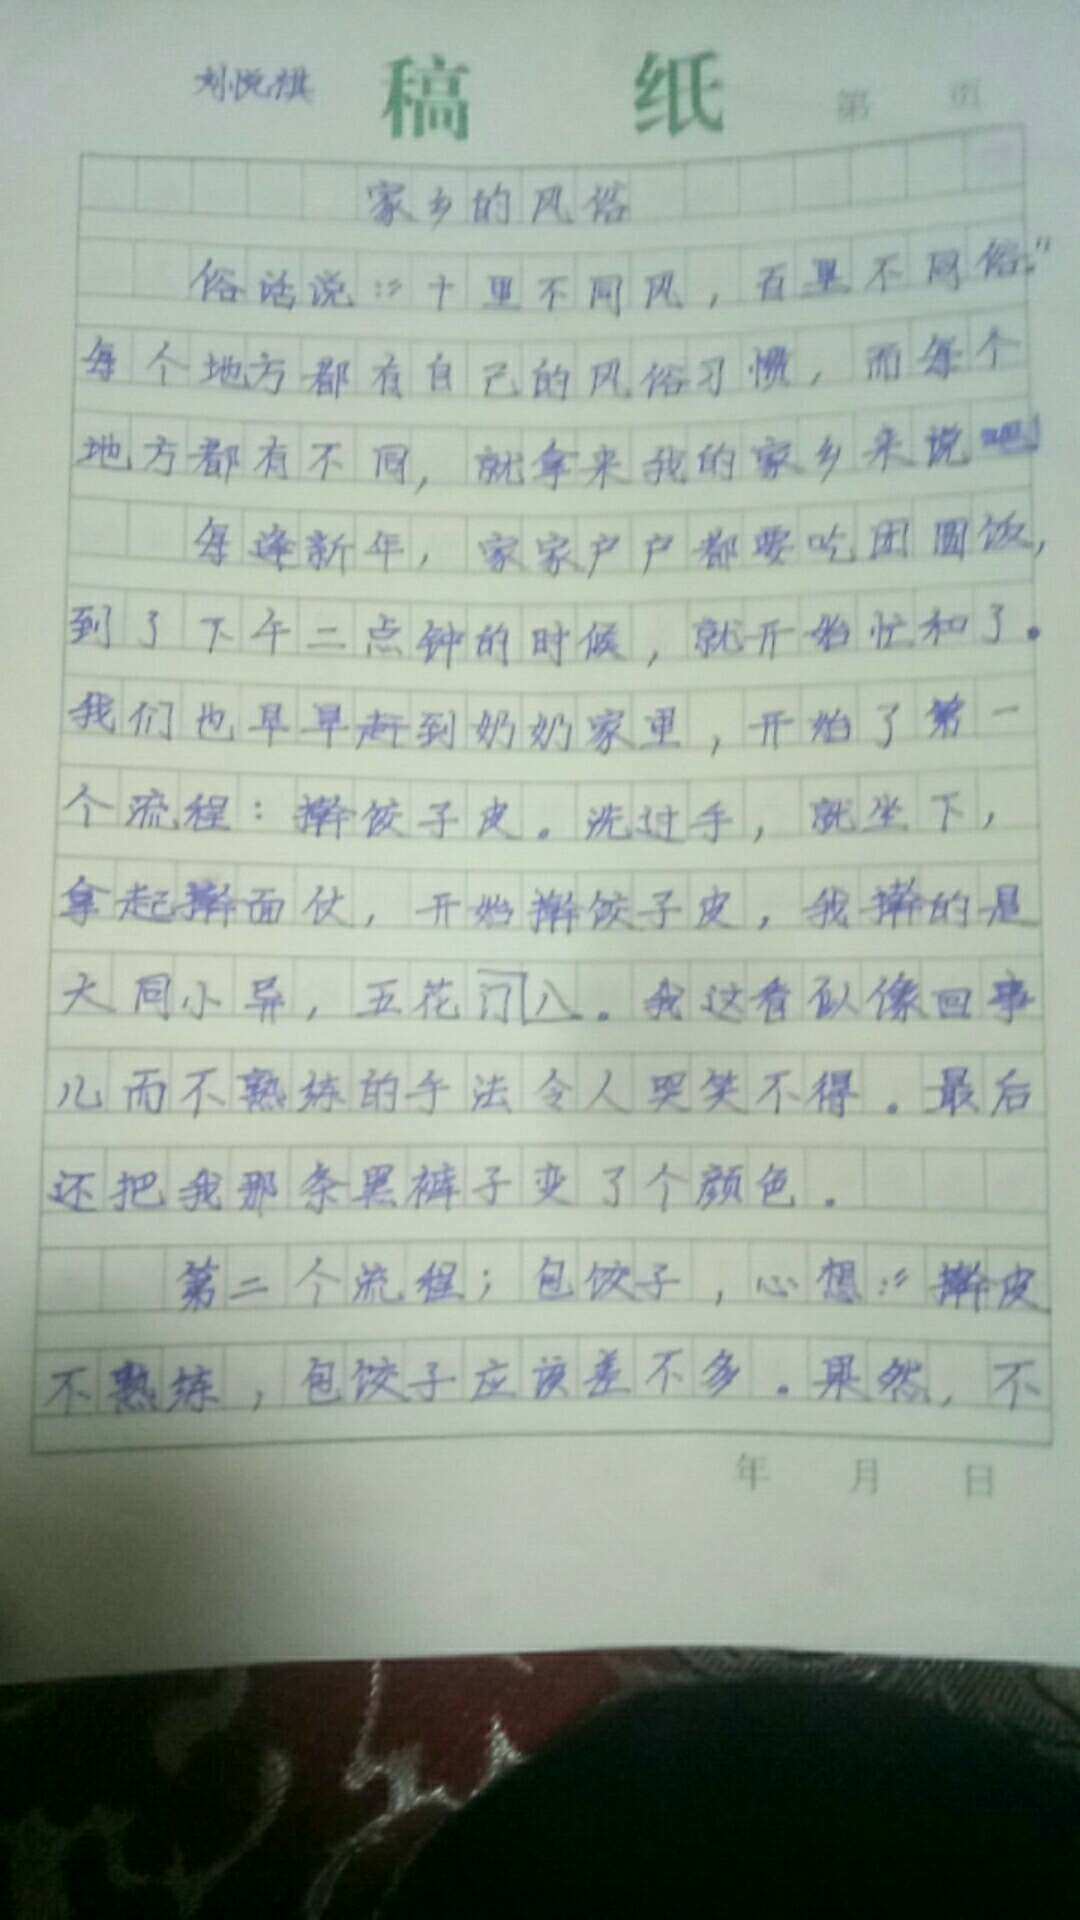 刘悦琪 稿 纸 第 页
家乡的风俗
俗话说："十里不同风，百里不同俗。"
每个地方都有自己的风俗习惯，而每个
地方都有不同，就拿来我的家乡来说吧
每逢新年，家家户户都要吃团圆饭，
到了下午二点钟的时候，就开始忙和了。
我们也早早赶到奶奶家里，开始了第一
个流程：擀饺子皮。洗过手，就坐下，
拿起擀面仗，开始擀饺子皮，我擀的是
大同小异，五花门八。我这看似像回事
儿而不熟练的手法令人哭笑不得。最后
还把我那条黑裤子变了个颜色。
第二个流程；包饺子，心想："擀皮
不熟练，包饺子应该差不多。果然，不
年 月 日